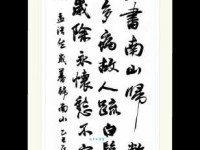 書南山歸敝
多病故人疏白髮
歲除永懷愁不寐
孟浩然歲暮歸南山